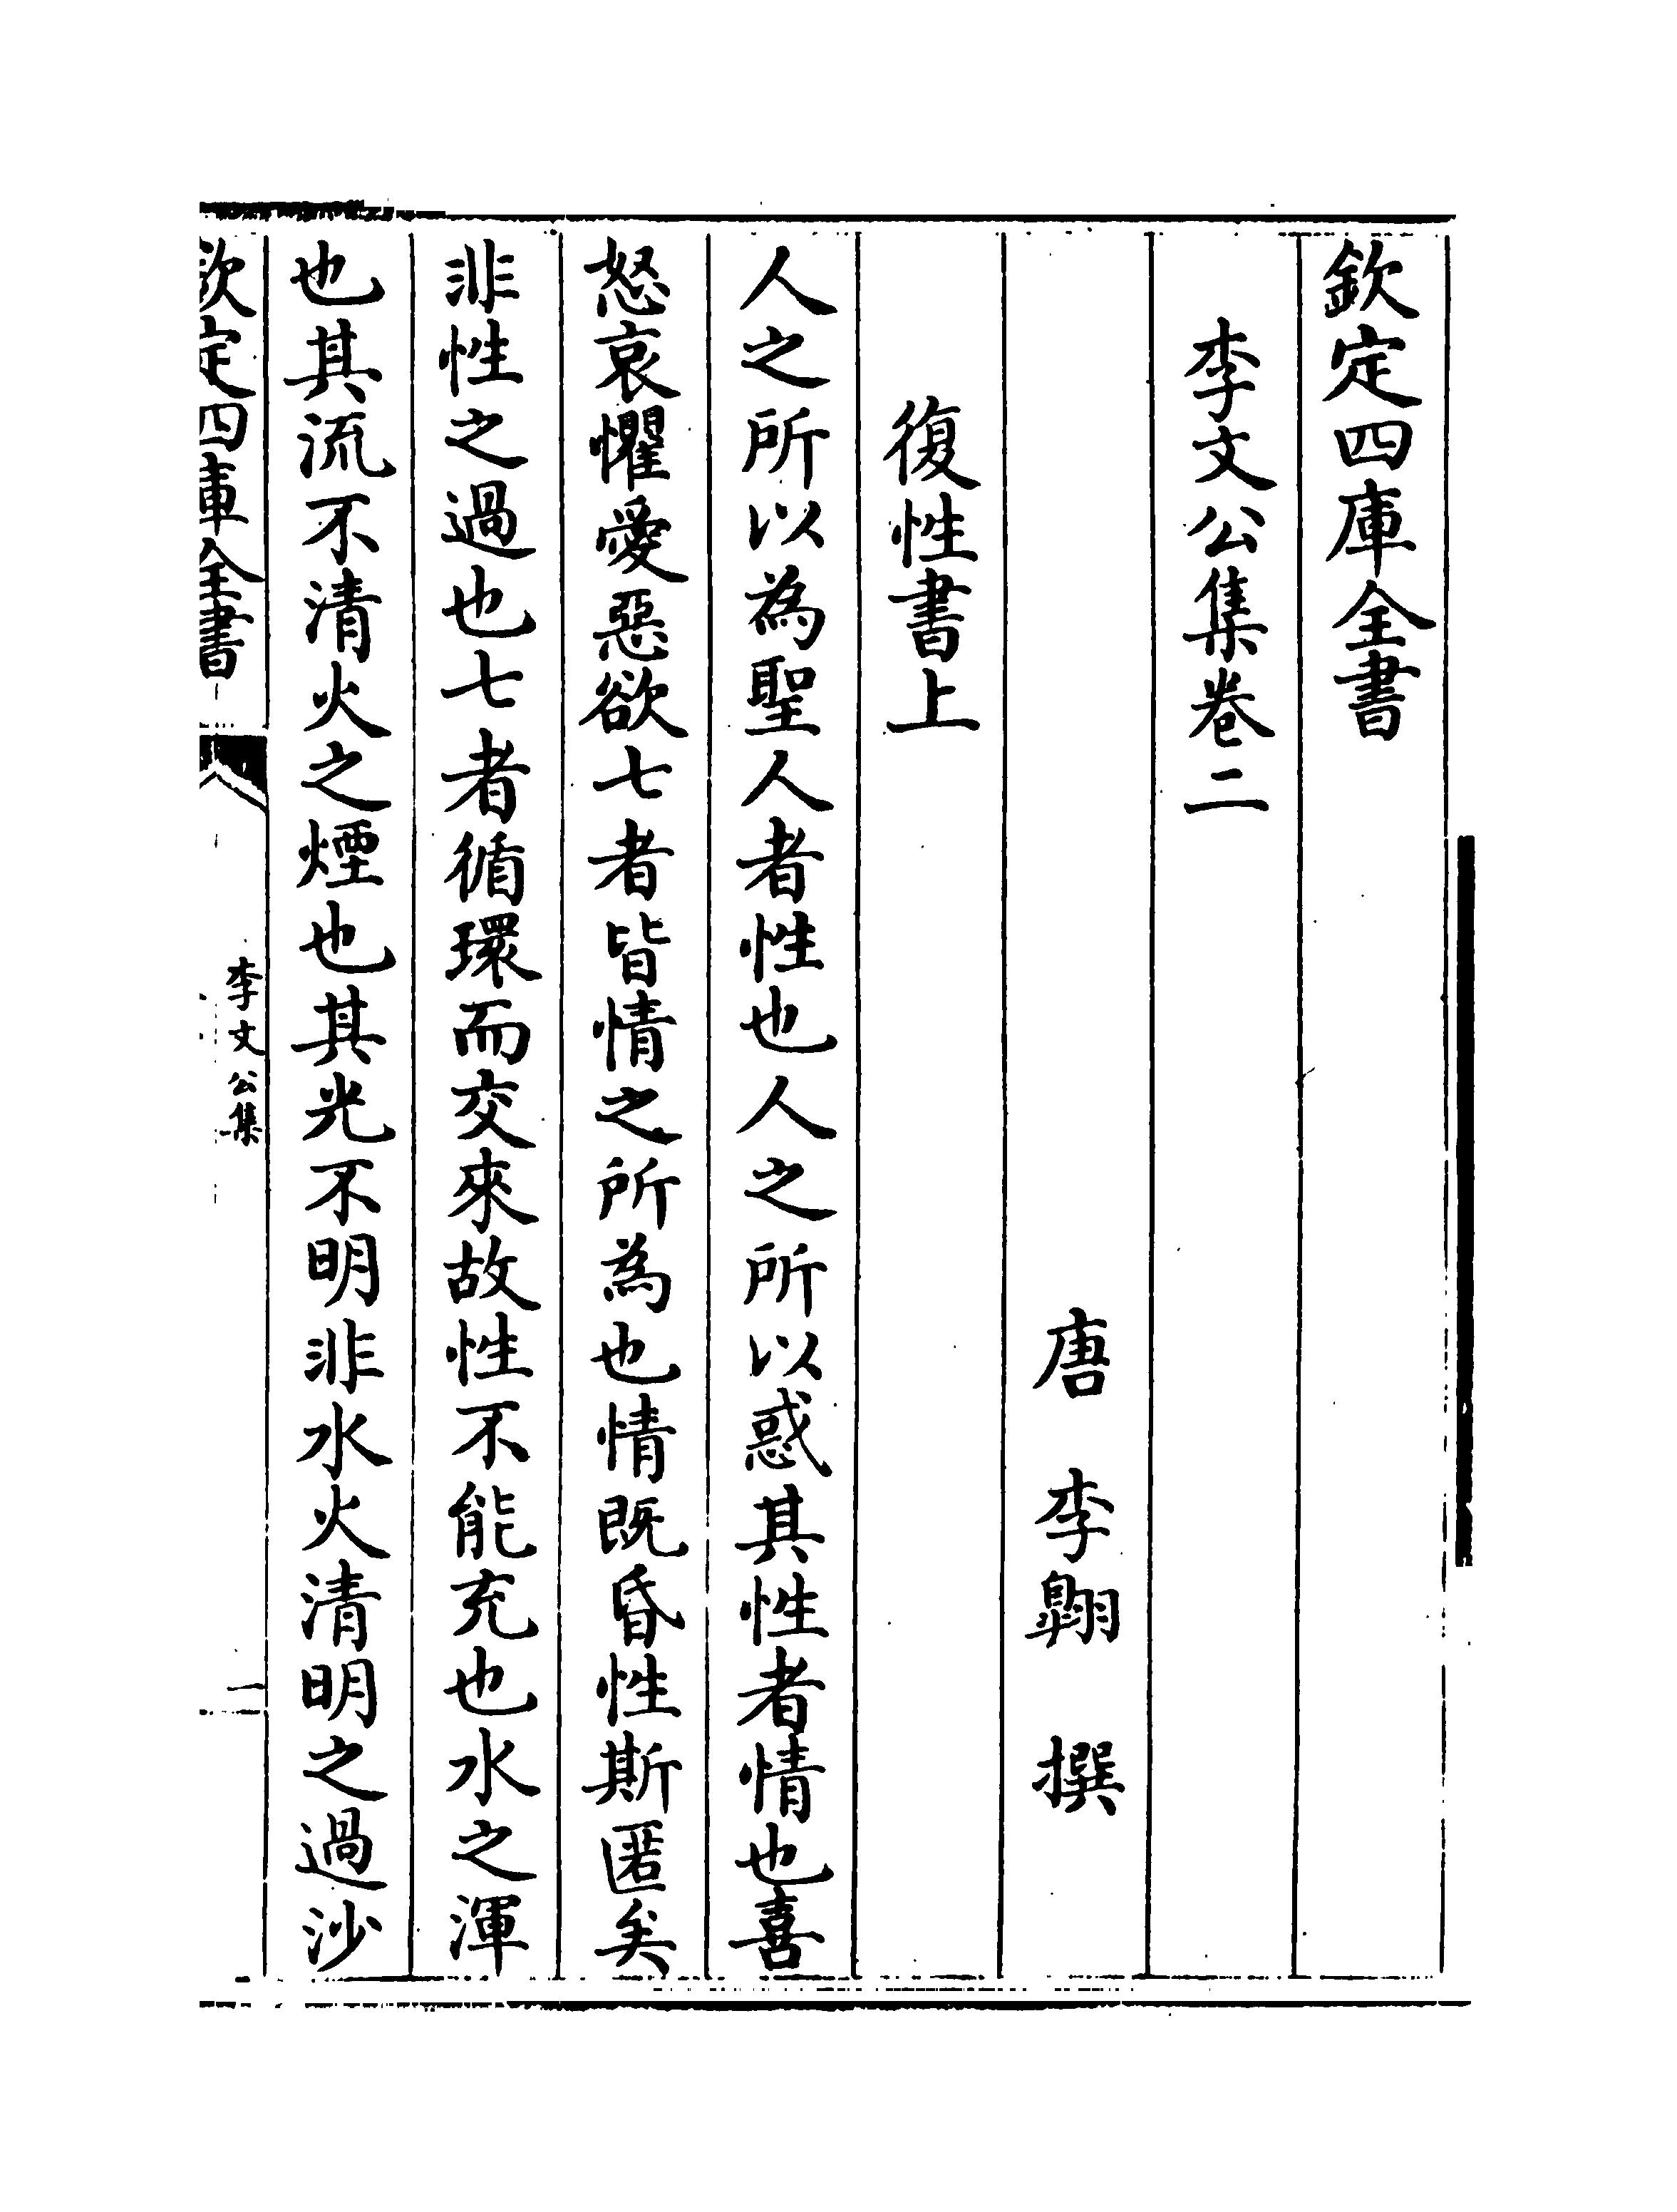 欽定四庫全書
李文公集卷二
唐 李翺 撰
復性書上
人之所以為聖人者性也人之所以惑其性者情也喜
怒哀懼愛惡欲七者皆情之所為也情既昏性斯匿矣
非性之過也七者循環而交來故性不能充也水之渾
也其流不清火之煙也其光不明非水火清明之過沙
欽定四庫全書
李文公集
一